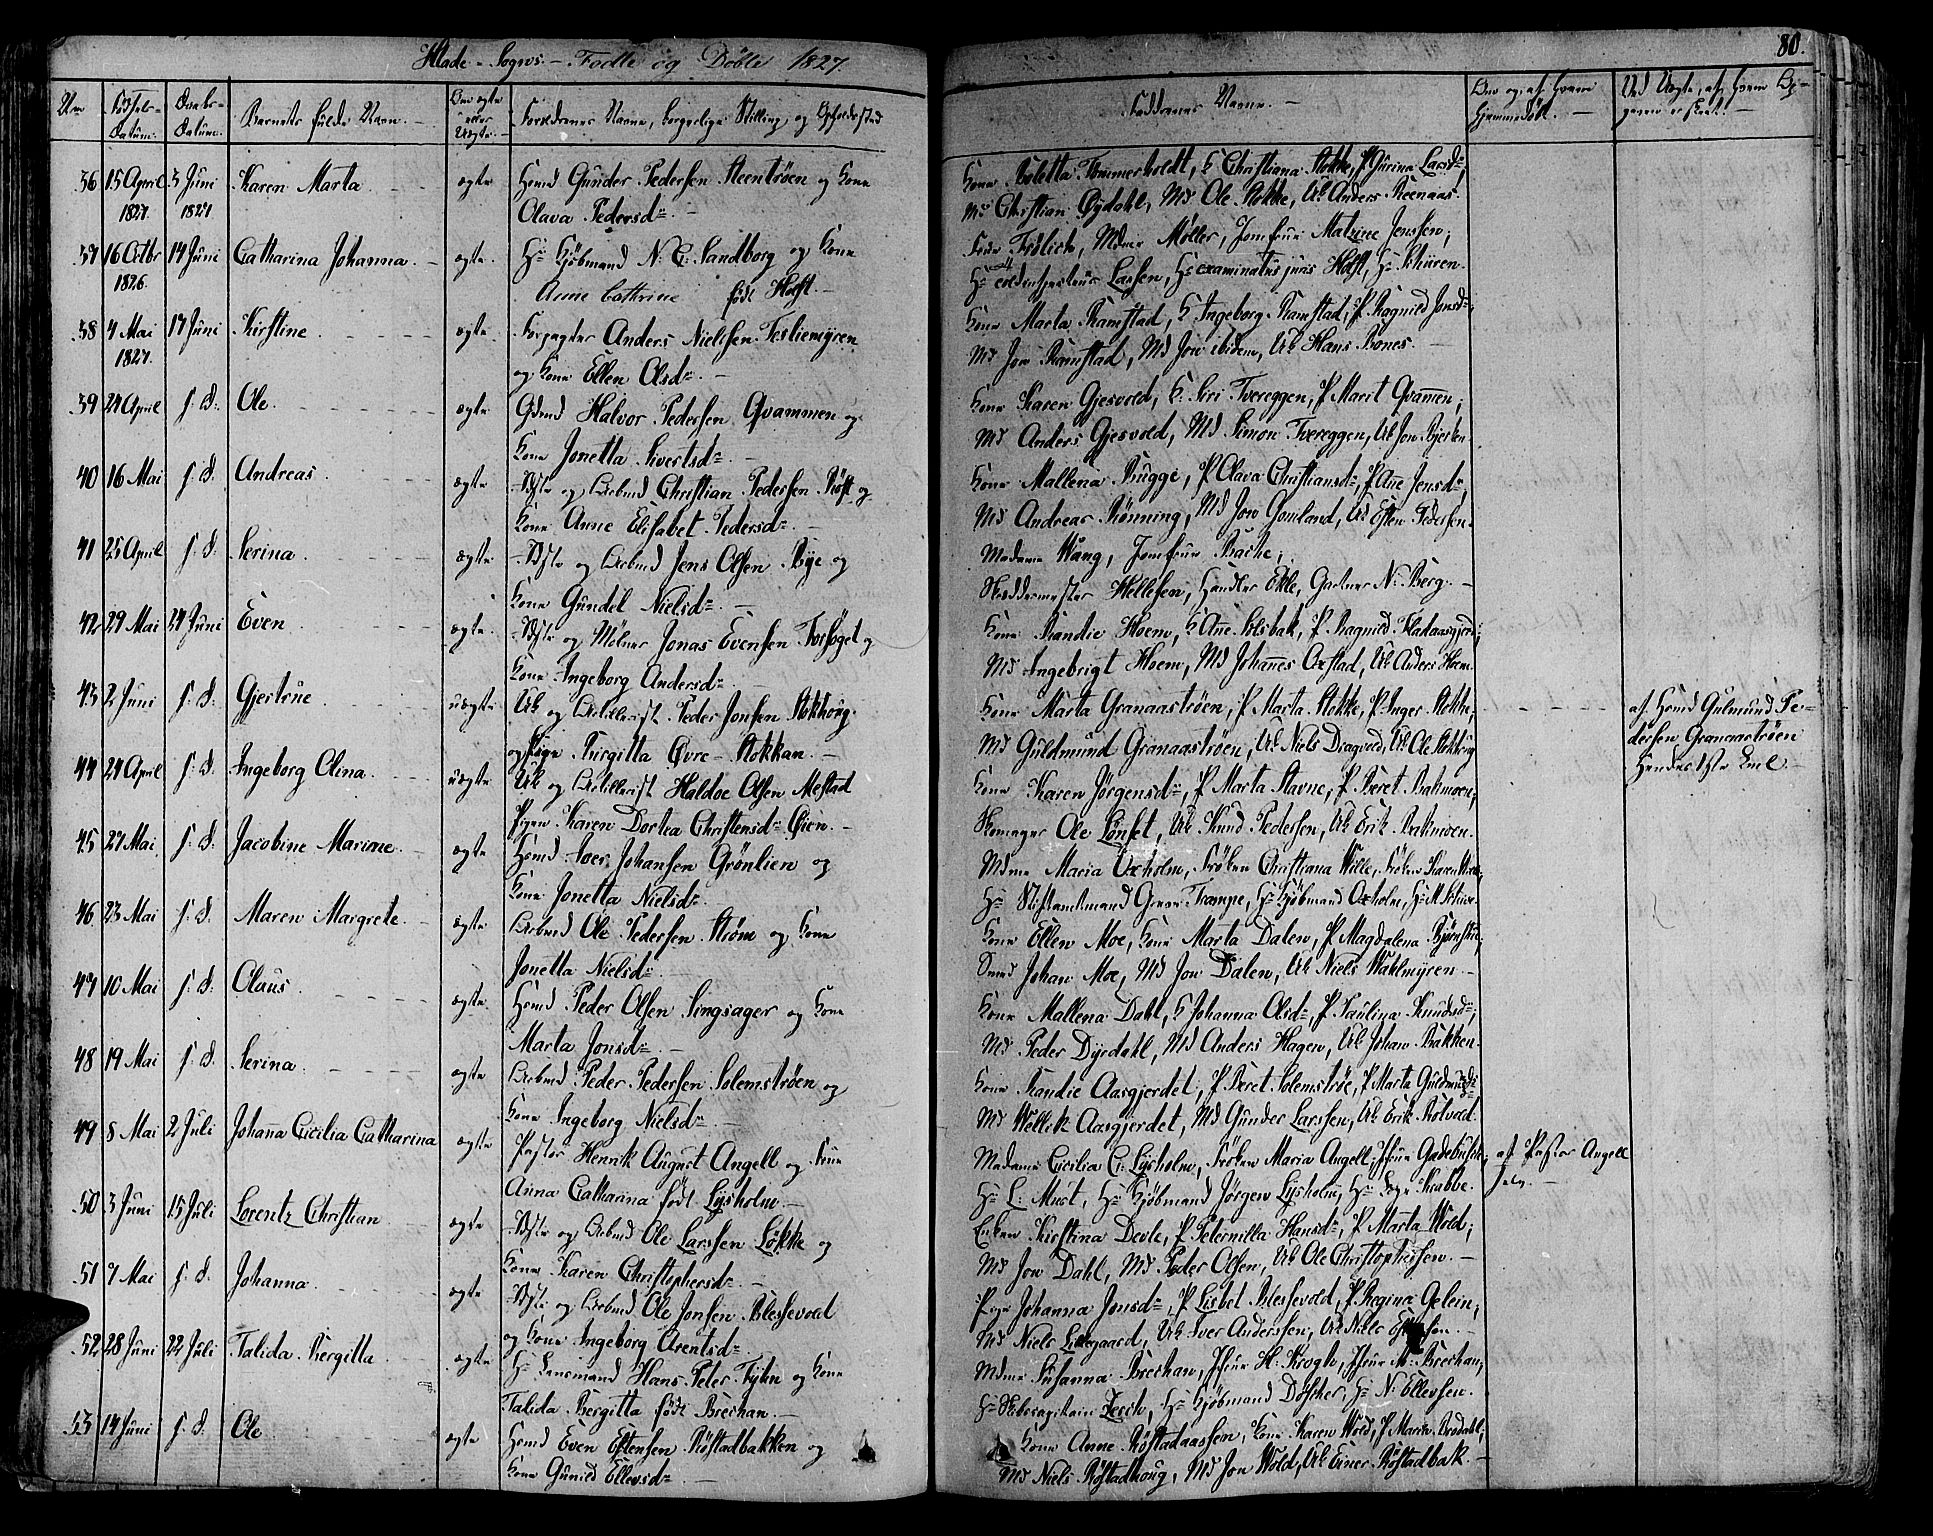 Hlade - Sogns - Fødte og Døbte 1827.
80.
Fødsels-Datum. Daabs-Datum. Barnets fulde Navn. Om ægte eller Uægte. Forældrenes Navne, borgerlige Stilling, og Opholdssted
Faddernes Navne. Om og af hvem hjemmedøbt. Ved Uægte, af hvem
36 15 April 3 Juni Karen Marta ægte Huusmd Gunder Pedersen Steentrøen og Kone
1827 1827. Olava Pedersd.
Kone Boletta Tømmerholdt, K Christiana Stokke, P Gurina Larsd,
Md Christian Øydahl, Md Ole Stokke, Uk Anders Reenaas.
37 16 Octbr 14 Juni Catharina Johanna ægte Hr Kjøbmand N. C. Sandborg og Kone
1826. Anne Cathrine født Holst.
Frølich, Mdme Møller, Jomfrue Matzine Jenssen;
Lassen, Hr examinatus juris Holst, Hr Schüren.
38 4 Mai 17 Juni Kirstine ægte Forpagter Anders Nielsen Tesliemyren
1827. og Kone Ellen Olsd.
Kone Marta Ramstad, K Ingeborg Ramstad, P Ragnild Jonsd;
Md Jon Ramstad, Md Jon ibidem, Uk Hans Bones.
39 24 April s. d. Ole ægte Gdmd Halvor Pedersen Qvammen og
Kone Jonetta Sivertsd.
Kone Karen Gjesvold, K. Siri Tvereggen, P Marit Qvamen;
Md Anders Gjesvold, Md Simon Tvereggen, Uk Jon Bjerken.
40 16 Mai s. d. Andreas ægte Idste og Arbmd Christian Pedersen Røst og
Kone Anne Elisabet Pedersd.
Kone Mallena Bugge, P Olava Christiansd, P Ane Jensd,
Md Andreas Rønning, Md Jon Gomland, Uk Esten Pedersen.
41 25 April s. d. Serina ægte og Arbmd Jens Olsen Bye og
Kone Gundel Nielsd.
Madame Wang, Jomfrue Bache;
Skreddermester Hellesen, Handler Elle, Gartner N. Berg.
42 29 Mai 24 Juni Even ægte og Mølner Jonas Evensen Forsøget og
Kone Ingeborg Andersd.
Kone Randie Hoem, K Ane Solsbak, P Ragnild Hladaasgjerd;
Md Ingebrigt Hoem, Md Johanes Oxstad, Uk Anders Hoem.
43 2 Juni s. d. Gjertrue uægte Uk og Artillerist Peder Jonsen Stokhoug
og Pigen Birgitta Øvre-Stokkan.
Kone Marta Granaastrøen, P Marta Stokke, P Inger Stokke;
Md Guldmund Granaastrøen, Uk Niels Dragvold, Uk Ole Stokhoug
af Huusmd Gulmund Pedersen Granaastrøen
44 24 April s. d. Ingeborg Olina uægte Uk og Artillerist Haldoe Olsen Mestad
Pigen Karen Dortea Christensd Øien.
Kone Karen Jörgensd, P Marta Stavne, P Beret Bakmoen;
Skomager Ole Lønset, Uk Knud Pedersen, Uk Erik Bakmoen.
45 27 Mai s. d. Jacobine Marione ægte Huusmd Iver Johansen Grønlien og
Kone Jonetta Nielsd.
Mdme Maria Oxholm, Frøken Christiana Wille, Frøken Karen
Hr Stiftamtmand Greve Trampe, Hr Kjøbmand Oxholm,
46 23 Mai s. d. Maren Margrete ægte Arbmd Ole Pedersen Strøm og Kone
Jonetta Nielsd.
Kone Ellen Moe, Kone Marta Dalen, P Magdalena
Smed Johan Moe, Md Jon Dalen, Uk Niels Wahlmyren
47 10 Mai s. d. Claus ægte Huusmd Peder Olsen Singsager og Kone
Marta Jonsd.
Kone Mallena Dahl, K Johanna Olsd, P Paulina Knudsd;
Md Peder Dyrdahl, Md Anders Hagen, Uk Johan Bakken.
48 19 Mai s. d. Serina ægte Arbmd Peder Pedersen Solemstrøen og
Kone Ingeborg Nielsd.
Kone Randie Aasgjerdet, P Beret Solemstrøe, P Marta
Md Wellik Aasgjerdet, Md Gunder Larssen, Uk Erik Rotvold.
49 8 Mai 2 Juli Johana Cicilia Catharina ægte Pastor Henrik August Angell og Frue
Anna Catharina født Lysholm
Madame Cicilia C. Lysholm, Frøken Maria Angell,
Hr L. Must, Hr Kjøbmand Jørgen Lysholm, Hr
af Pastor Angell selv.
50 3 Juni 15 Juli Lorentz Christian ægte og Arbmd Ole Larssen Løkke og
Kone Karen Christophersd.
Enken Kirstina Devle, P Peternilla Hansd, P Marta Wold;
Md Jon Dahl, Md Peder Olsen, Uk Ole Christophersen.
51 7 Mai s. d. Johanna ægte og Arbmd Ole Jonsen Blessevold
og Kone Ingeborg Arentsd.
Pige Johanna Jonsd, P Lisbet Blessevold, P Regina Gelein;
Md Niels Lillegaard, Uk Iver Anderssen, Uk Niels
52 28 Juni 22 Juli Talida Bergitta ægte Hr Lensmand Hans Peter Tyten og Kone
Talida Bergitta født Brechan.
Mdme Susanna Brechan, Jfrue H. Krogh, Jfrue M. Brechan;
Hr Skibscapitain Hr Kjøbmand Døscher, Hr N. Ellevsen.
53 14 Juni s. d. Ole ægte Huusmd Even Estensen Røstadbakken og
Kone Gunild Ellevsd.
Kone Anne Røstadaassen, Kone Karen Wold, P Maren
Md Niels Røstadhoug, Md Jon Wold, Uk Einer Røstadbak.